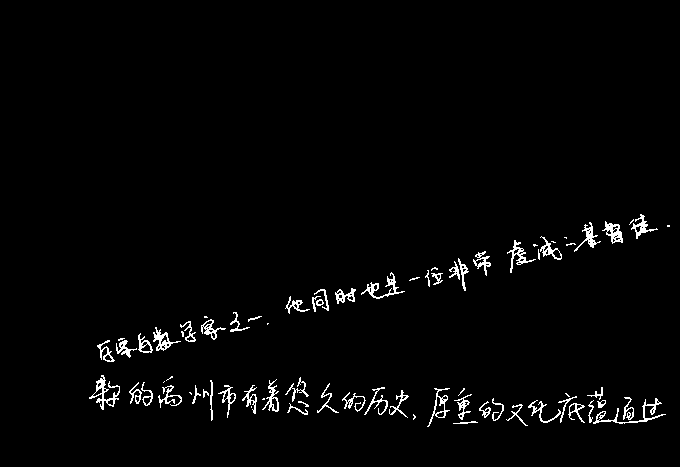 与数学家之一.他同时也是一位非常虔诚之基督徒.
的禹州市有着悠久的历史,厚重的文化底蕴通过